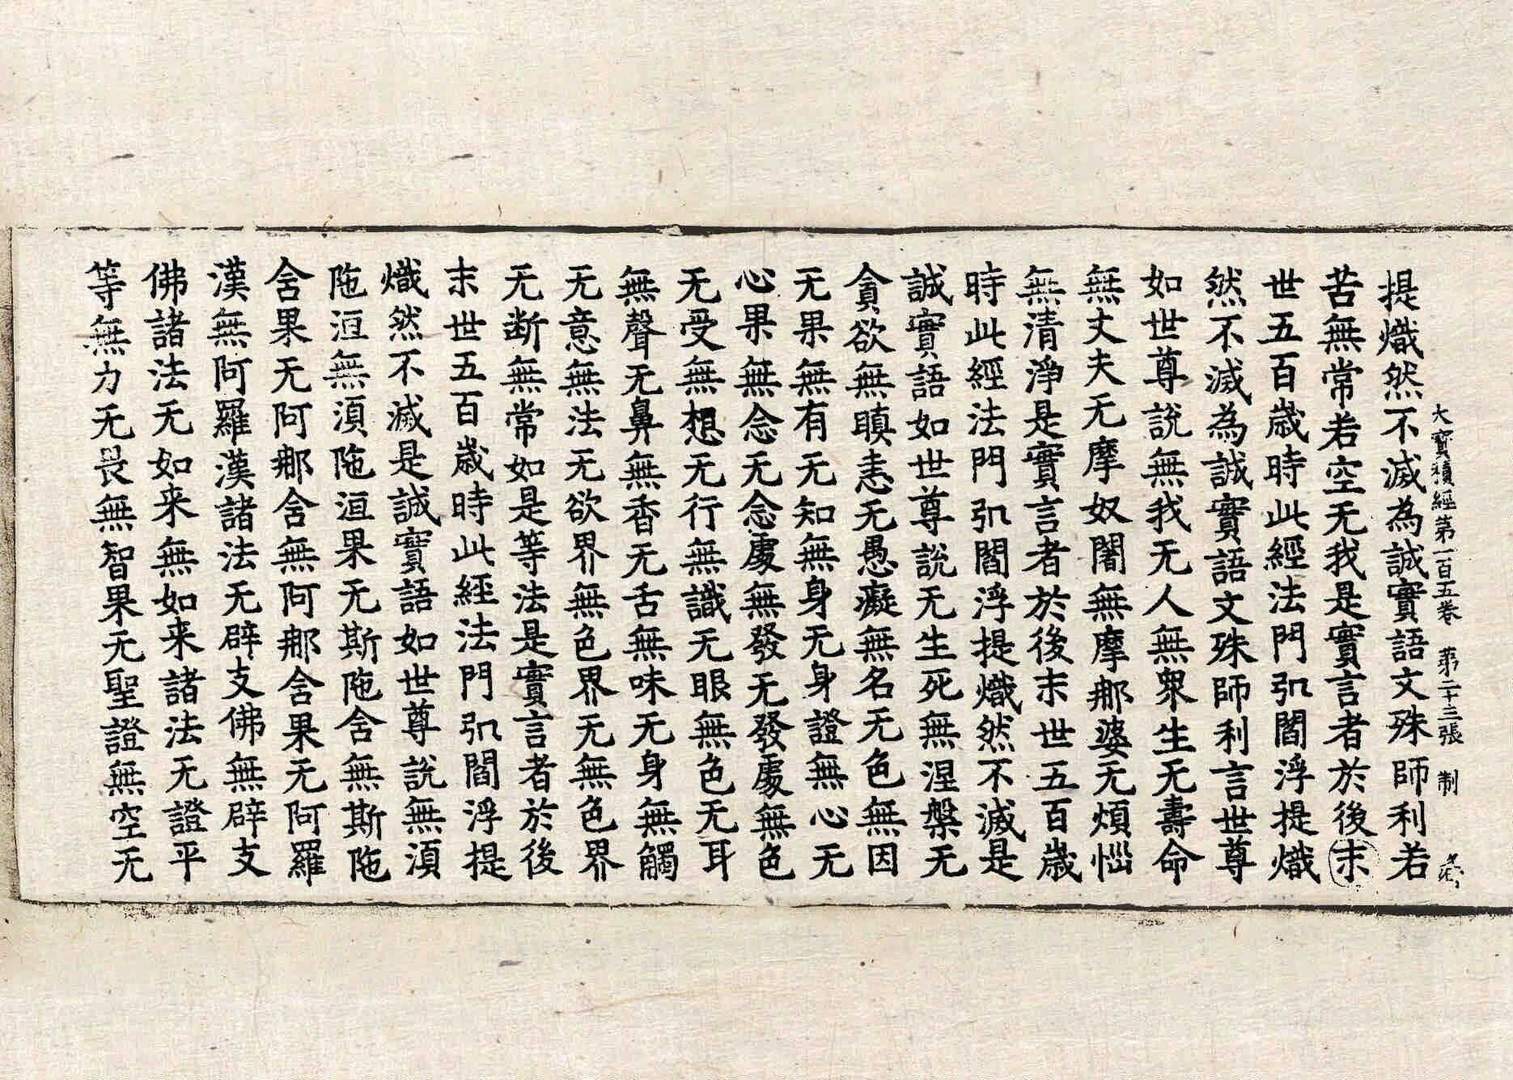 大寶積經第一百五卷　第二十三張　制
提熾然不滅為誠實語文殊師利若
苦無常若空无我是實言者於後末
世五百歲時此經法門於閻浮提熾
然不滅為誠實語文殊師利言世尊
如世尊說無我无人無衆生无壽命
無丈夫无摩奴闍無摩那婆无煩惱
無清淨是實言者於後末世五百歲
時此經法門於閻浮提熾然不滅是
誠實語如世尊說无生死無涅槃无
貪欲無瞋恚无愚癡無名无色無因
无果無有无知無身无身證無心无
心果無念无念處無發无發處無色
无受無想无行無識无眼無色无耳
無聲无鼻無香无舌無味无身無觸
无意無法无欲界無色界无無色界
无断無常如是等法是實言者於後
末世五百歲時此經法門於閻浮提
熾然不滅是誠實語如世尊說無湏
陁洹無湏陁洹果无斯陁含無斯陁
含果无阿那含無阿那含果无阿羅
漢無阿羅漢諸法无辟支佛無辟支
佛諸法无如来無如来諸法无證平
等無力无畏無智果无聖證無空无